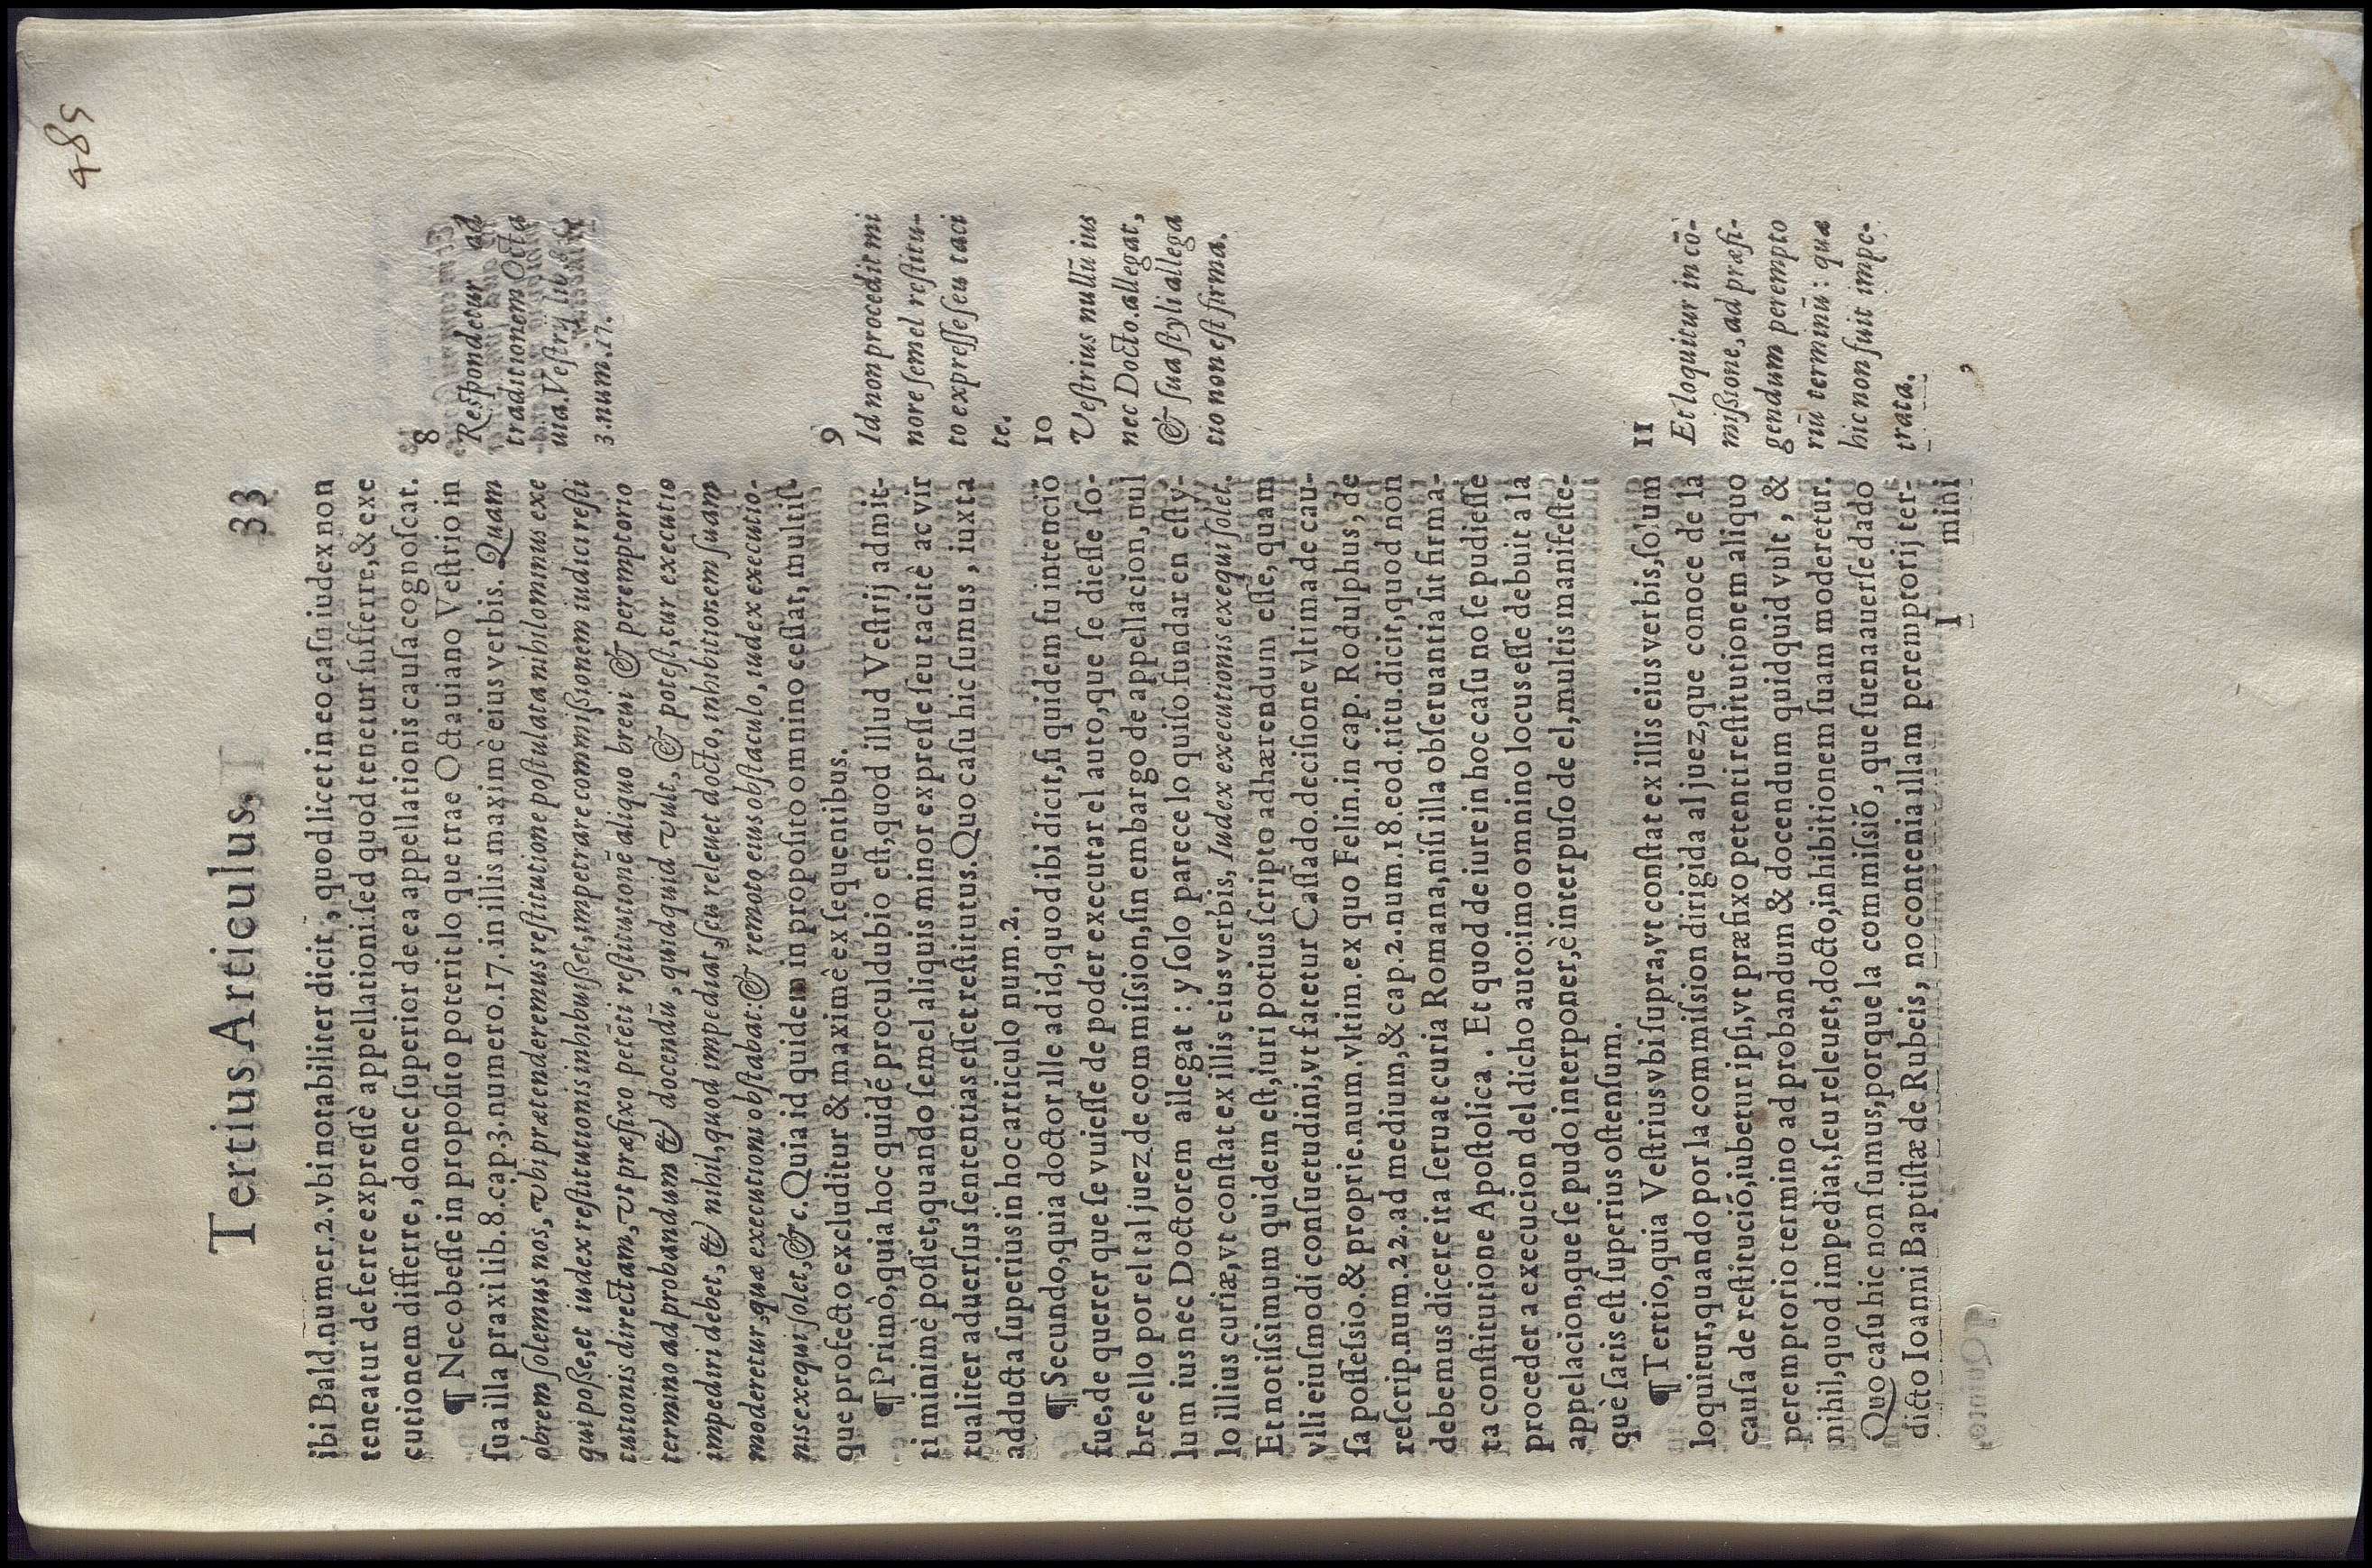 485
Tertius Articulus. 33
ibi Bald. numer. 2. vbi notabiliter dicit, quod licet in eo casu iudex non
teneatur deferere expressè appellationi: sed quod tenetur sufferre, & exe
cutionem differre, donec superior de ea appellationis causa cognoscat.
¶ Nec obesse in proposito poterit lo que trae Octauiano Vestrio in
sua illa praxi lib. 8. cap. 3. numero. 17. in illis maximè eius verbis. Quam
obrem solemus nos, vbi prætenderemus restitutione postulata nihilominus exe
qui posse, et iudex restitutionis inhibuisset, impetrare commissionem iudici resti
tutionis directam, vt præfixo petēti restitutionē aliquo breui & peremptorio
termino ad probandum & docendū, quidquid vult, & potest, cur executio
impediri debet, & nihil, quod impediat, seu releuet docto, inhibitionem suam
moderetur, quæ executioni obstabat: & remoto eius obstaculo, iudex executio-
nis exequi solet, &c. Quia id quidem in proposito omnino cessat, multisḉ
que profecto excluditur & maximè ex sequentibus.
¶ Primò, quia hoc quidē proculdubio est, quod illud Vestrij admit-
ti minimè posset, quando semel aliquis minor expresse seu tacitè ac vir
tualiter aduersus sententias esset restitutus. Quo casu hic sumus, iuxta
adducta superius in hoc articulo num. 2.
¶ Secundo, quia doctor ille ad id, quod ibi dicit, si quidem su intencio
fue, de querer que se vuiesse de poder executar el auto, que se diesse so-
bre ello por el tal juez de commission, sin embargo de appellacion, nul
lum ius nec Doctorem allegat: y solo parece lo quiso fundar en esty-
lo illius curiæ, vt constat ex illis eius verbis, Iudex executionis exequi solet.
Et notissimum quidem est, iuri potius scripto adhærendum esse, quam
vlli eiusmodi consuetudini, vt fatetur Cassado. decisione vltima de cau-
sa possessio. & proprie. num. vltim. ex quo Felin. in cap. Rodulphus, de
rescrip. num. 22. ad medium, & cap. 2. num. 18. eod. titu. dicit, quod non
debemus dicere ita seruat curia Romana, nisi illa obseruantia sit firma-
ta constitutione Apostolica. Et quod de iure in hoc casu no se pudiesse
proceder a execucion del dicho auto: imo omnino locus esse debuit a la
appelacion, que se pudo interponer, è interpuso de el, multis manifeste-
què satis est superius ostensum.
¶ Tertio, quia Vestrius vbi supra, vt constat ex illis eius verbis, solum
loquitur, quando por la commission dirigida al juez, que conoce de la
causa de restitució, iubetur ipsi, vt præfixo petenti restitutionem aliquo
peremptorio termino ad probandum & docendum quidquid vult, &
nihil, quod impediat, seu releuet, docto, inhibitionem suam moderetur.
Quo casu hic non sumus, porque la commisió, que suena auerse dado
dicto Ioanni Baptistæ de Rubeis, no contenia illam peremptorij ter-
I mini
8
Respondetur ad
traditionem Octa
uia. Vestrij lib. 8. c.
3. num. 17.
9
Id non procedit mi
nore semel restitu-
to expresse seu taci
te.
10
Vestrius nullū ius
nec Docto. allegat,
& sua styli allega
tio non est firma.
11
Et loquitur in cō-
missione, ad præfi-
gendum perempto
riū terminū: quæ
hic non fuit impe-
trata.